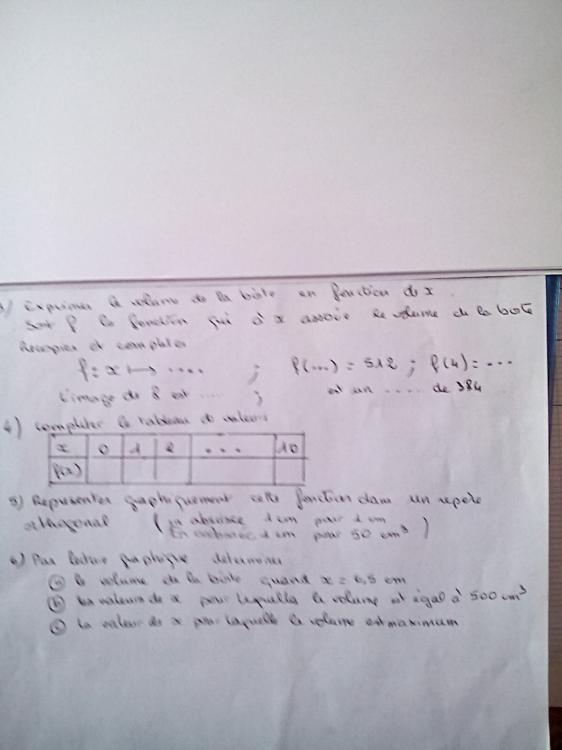 3) Exprimer le volume de la boîte en fonction de x.
Soit f la fonction qui à x associe le volume de la boîte
Recopier et completer
f : x ↦ .... ; f(...) = 512 ; f(4) = ...
L'image de 8 est .... ; est un ..... de 384
4) Completer le tableau de valeurs
x 0 1 2 ... 10
f(x)
5) Representer graphiquement cette fonction dans un repere
orthogonal ( En abscisse 1 cm pour 1 cm
En ordonnée 1 cm pour 50 cm³ )
6) Par lecture graphique determiner
a) le volume de la boite quand x = 6,5 cm
b) les valeurs de x pour lequelles le volume est egal à 500 cm³
c) la valeur de x pour laquelle le volume est maximum